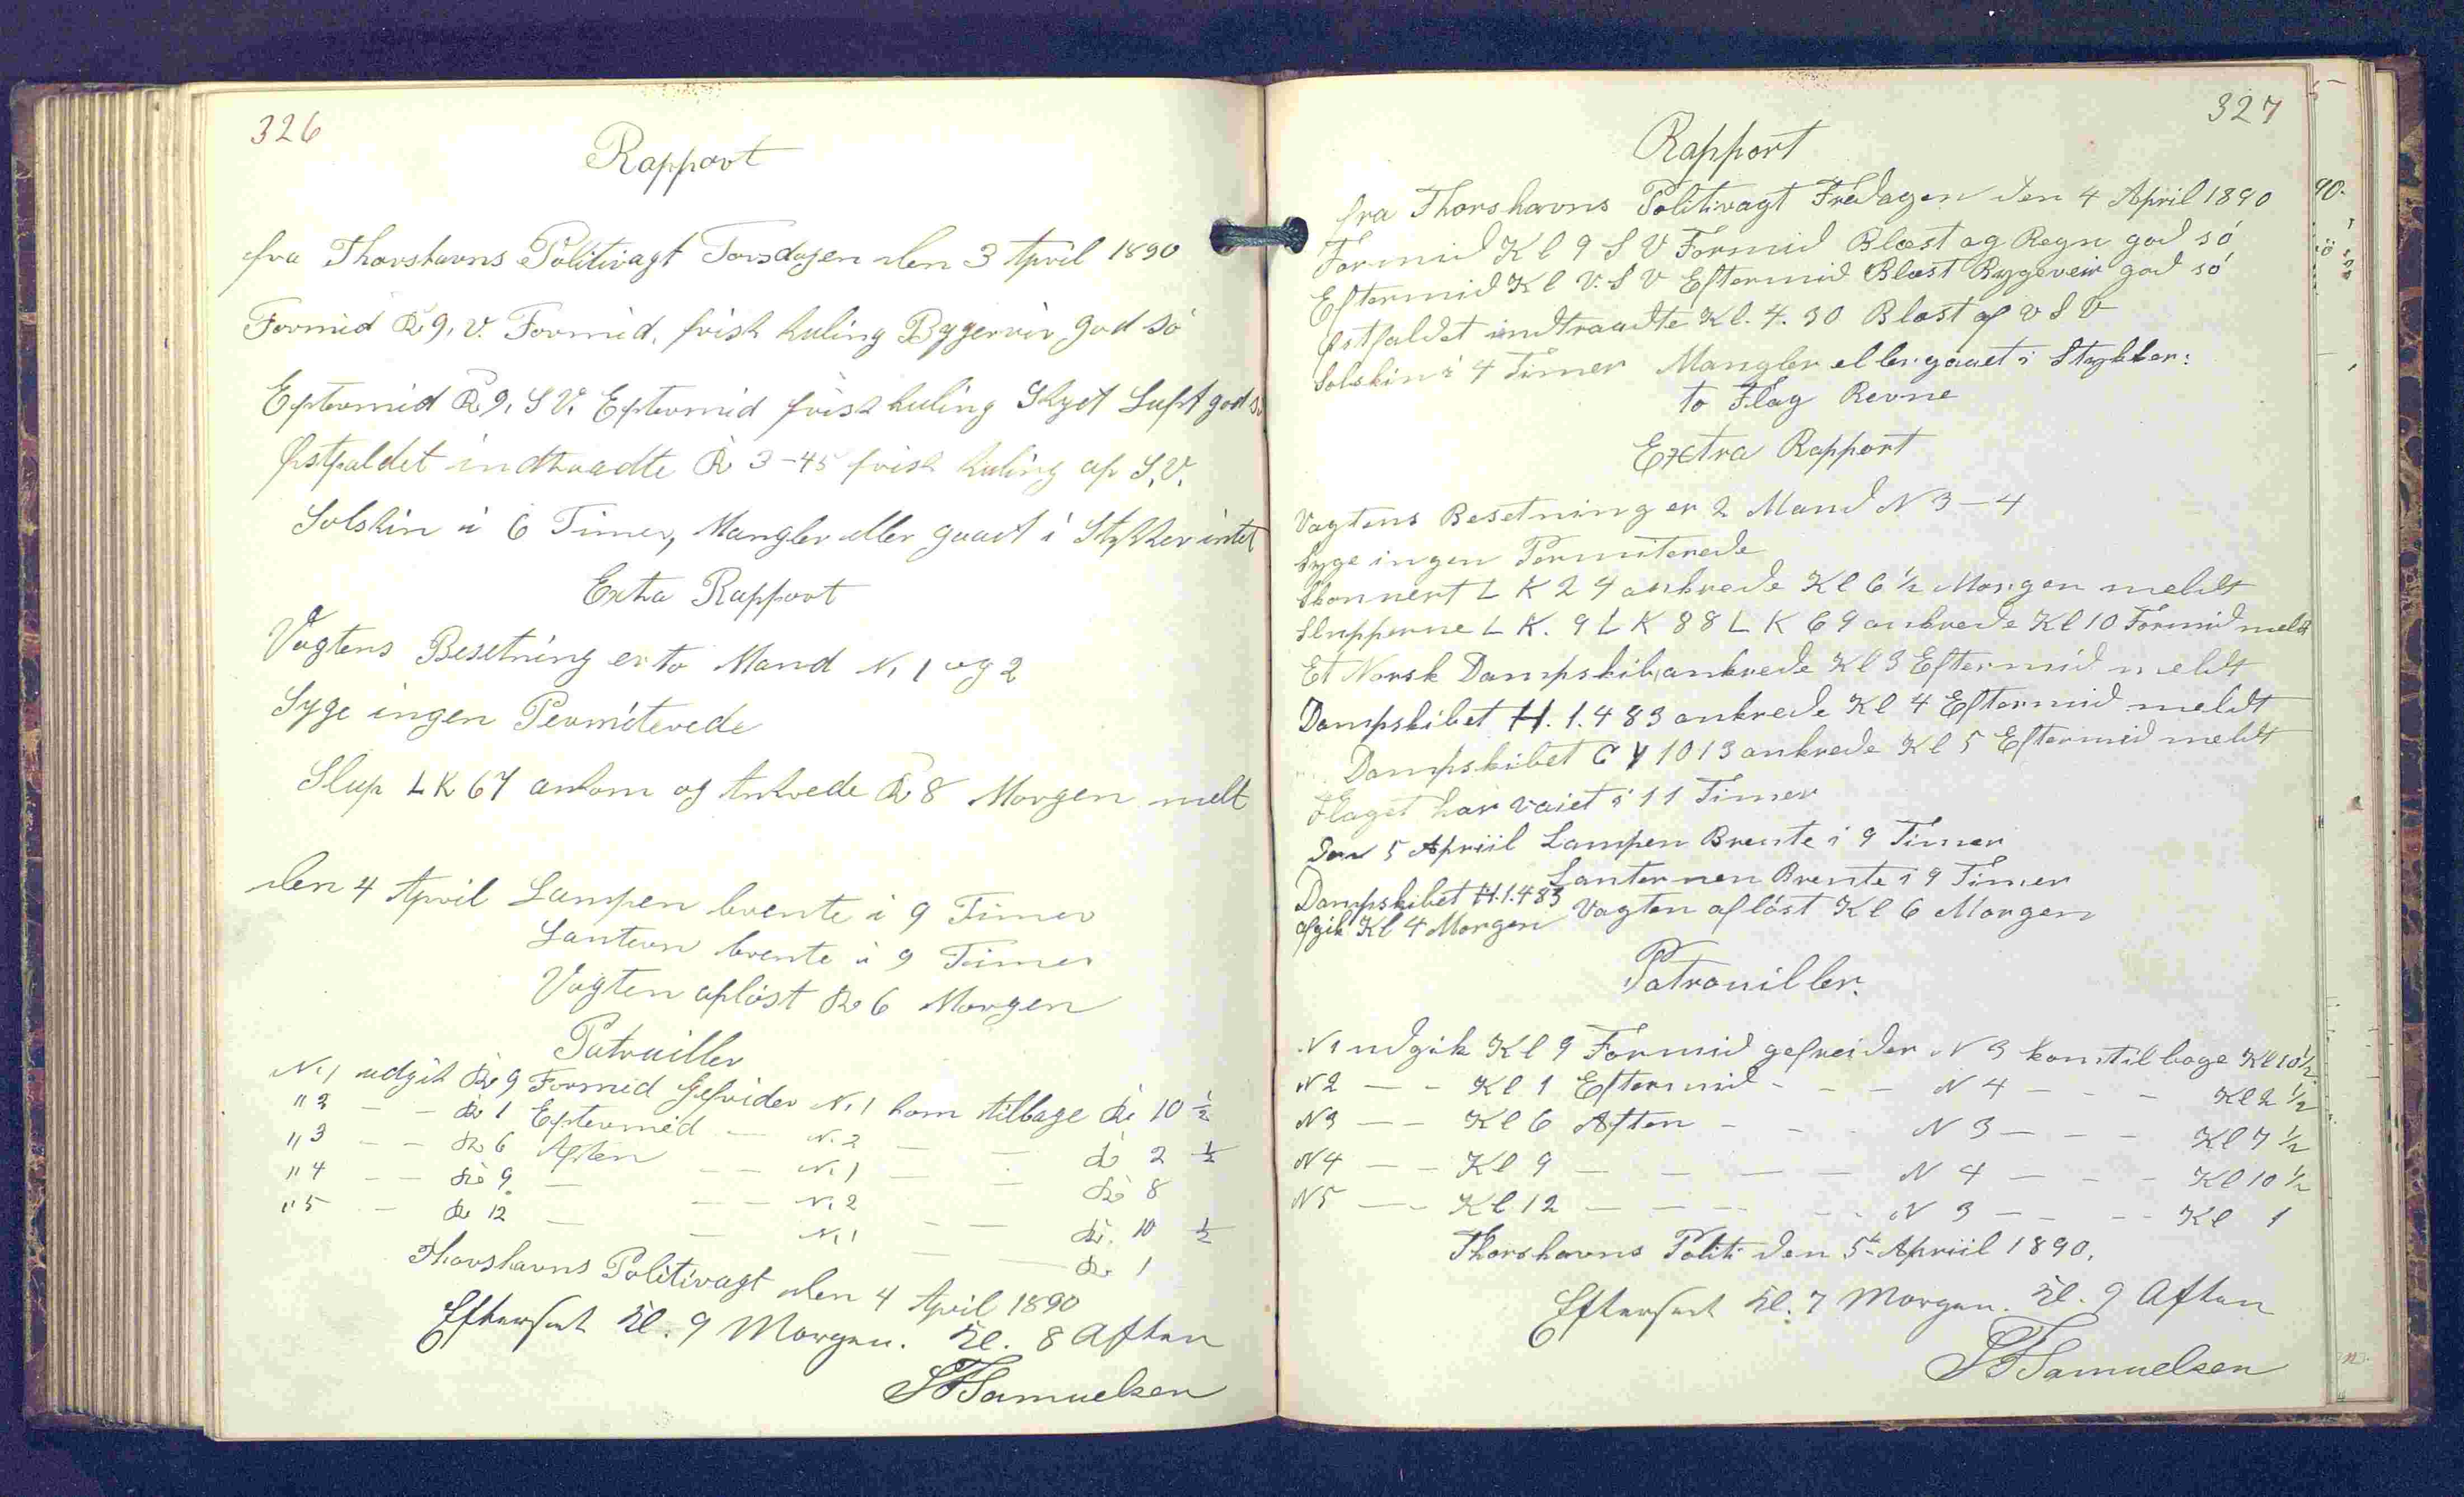 326
Rapport
fra Thorshavns Politivagt Torsdagen den 3 April 1890
Formid Kl 9, V. Formid, frisk kuling Bygerveir god só
Eftermid Kl 9, S V. Eftermid frisk kuling Skyet Luft god só
Østfaldet indtraadte Kl 3-45 frisk kuling af S.V.
Solskin i 6 Timer, Mangler eller gaaet i Stykker intet
Extra Rapport
Vagtens Besetning er to Mand N. 1 og 2
Syge ingen Permiterede
Slup LK 67 ankom og Ankrede Kl 8 Morgen melt
den 4 April Lampen brente i 9 Timer
Lantern brente i 9 Timer
Vagten aflóst Kl 6 Morgen
Patruiller
N. 1 udgik Kl 9 Formid Gefrider N. 1 kom tilbage Kl 10 ½
" 2 — - Kl 1 Eftermid — N. 2 — - Kl 2 ½
" 3 — - Kl 6 Aften — - N. 1 — - Kl 8
" 4 — - Kl 9 — — - N. 2 — — Kl. 10 ½
" 5 — Kl 12 — — N. 1 — — Kl 1
Thorshavns Politivagt den 4 April 1890
Efterseet Kl. 9 Morgen. Kl. 8 Aften
Samuelsen
327
Rapport
fra Thorshavns Politivagt Fredagen den 4 April 1890
Formid Kl 9 S V Formid Blæst og Regn god só
Eftermid Kl V. S V Eftermid Blæst Bygeveir god só
Østfaldet indtraadte Kl. 4. 30 Blæst af V S V
Solskin i 4 Timer Mangler eller gaaet i Stykker:
to Flag Revne
Extra Rapport
Vagtens Besetning er 2 Mand N 3 — 4
Syge ingen Permiterede
Skonnert L K 24 ankrede Kl 6 ½ Morgen meldt
Slupperne L K. 9 L K 88 L K 69 ankrede Kl 10 Formid meldt
Et Norsk Dampskib, ankrede Kl 3 Eftermid meldt
Dampskibet H. 1. 483 ankrede Kl 4 Eftermid meldt
Dampskibet G Y 1013 ankrede Kl 5 Eftermid meldt
Flaget har vaiet i 11 Timer
Den 5 Apriil Lampen Brente i 9 Timer
Lanternen Brente i 9 Timer
Dampskibet H.1.483
afgik Kl 4 Morgen Vagten aflóst Kl 6 Morgen
Patrouiller.
N 1 udgik Kl 9 Formid gefreider N 3 kom tilbage Kl 10 ½
N 2 — - Kl 1 Eftermid - - - N 4 - - - Kl 2 ½
N 3 — - Kl 6 Aften - - - N 3 — - - Kl 7 ½
N 4 — - Kl 9 — — — — N 4 — - - Kl 10 ½
N 5 — - Kl. 12 — — — - - N 3 — - - Kl 1
Thorshavns Politi den 5te Apriil 1890.
Efterseet Kl. 7 Morgen. Kl. 9 Aften
Samuelsen
90.